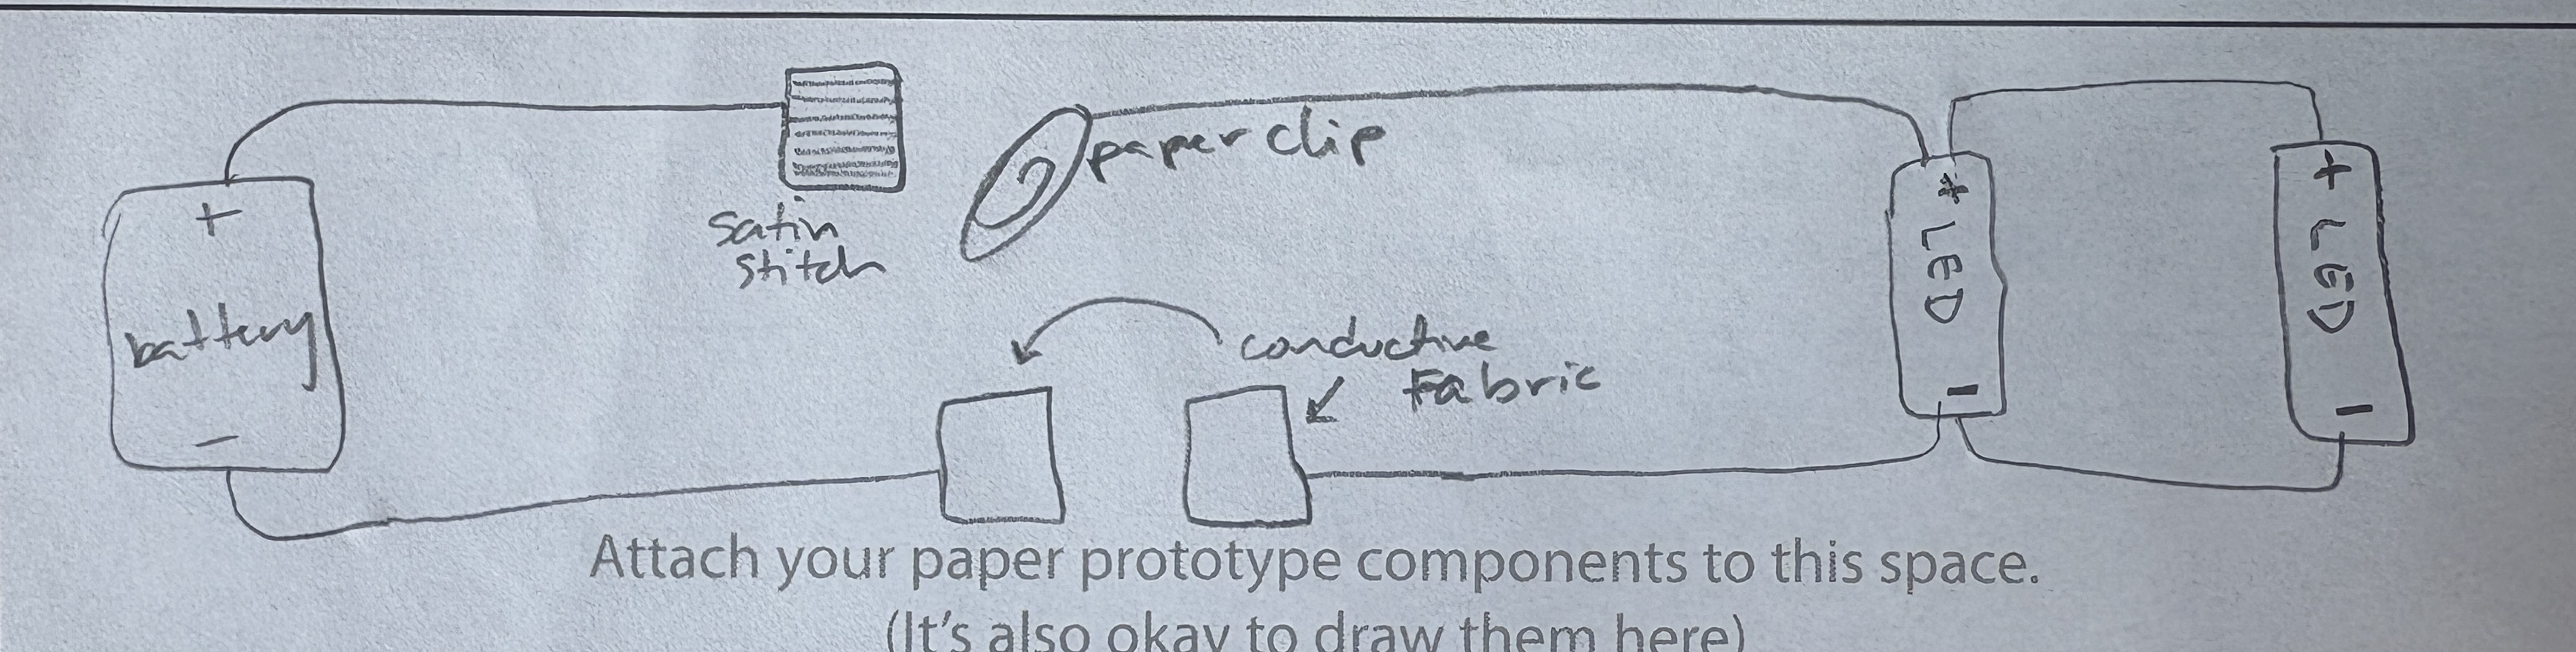 +
battery
-
satin
stitch
paper clip
conductive
Fabric
+ LED -
+ LED -
Attach your paper prototype components to this space.
(It's also okay to draw them here)